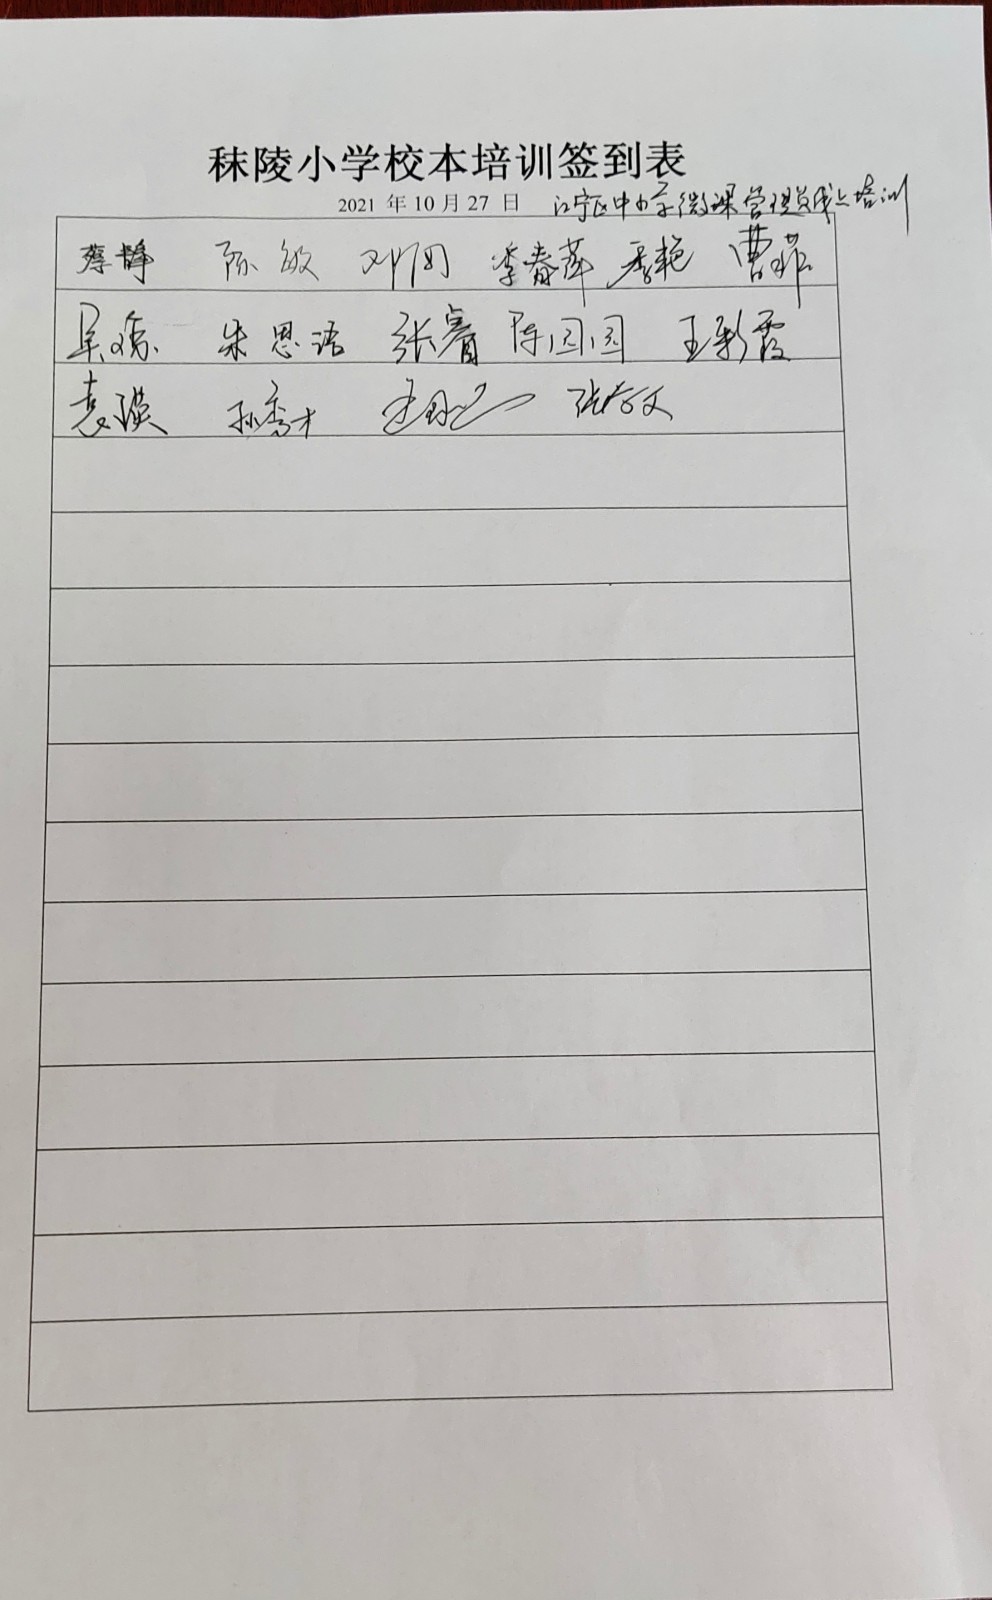 秣陵小学校本培训签到表
2021 年 10 月 27 日 江宁区中小学微课管理员线上培训
蔡静 陈敏 邓 李春萍 季艳 曹菲
吴琼 朱思语 张睿 陈园园 王彩霞
袁瑛 孙秀才 张文